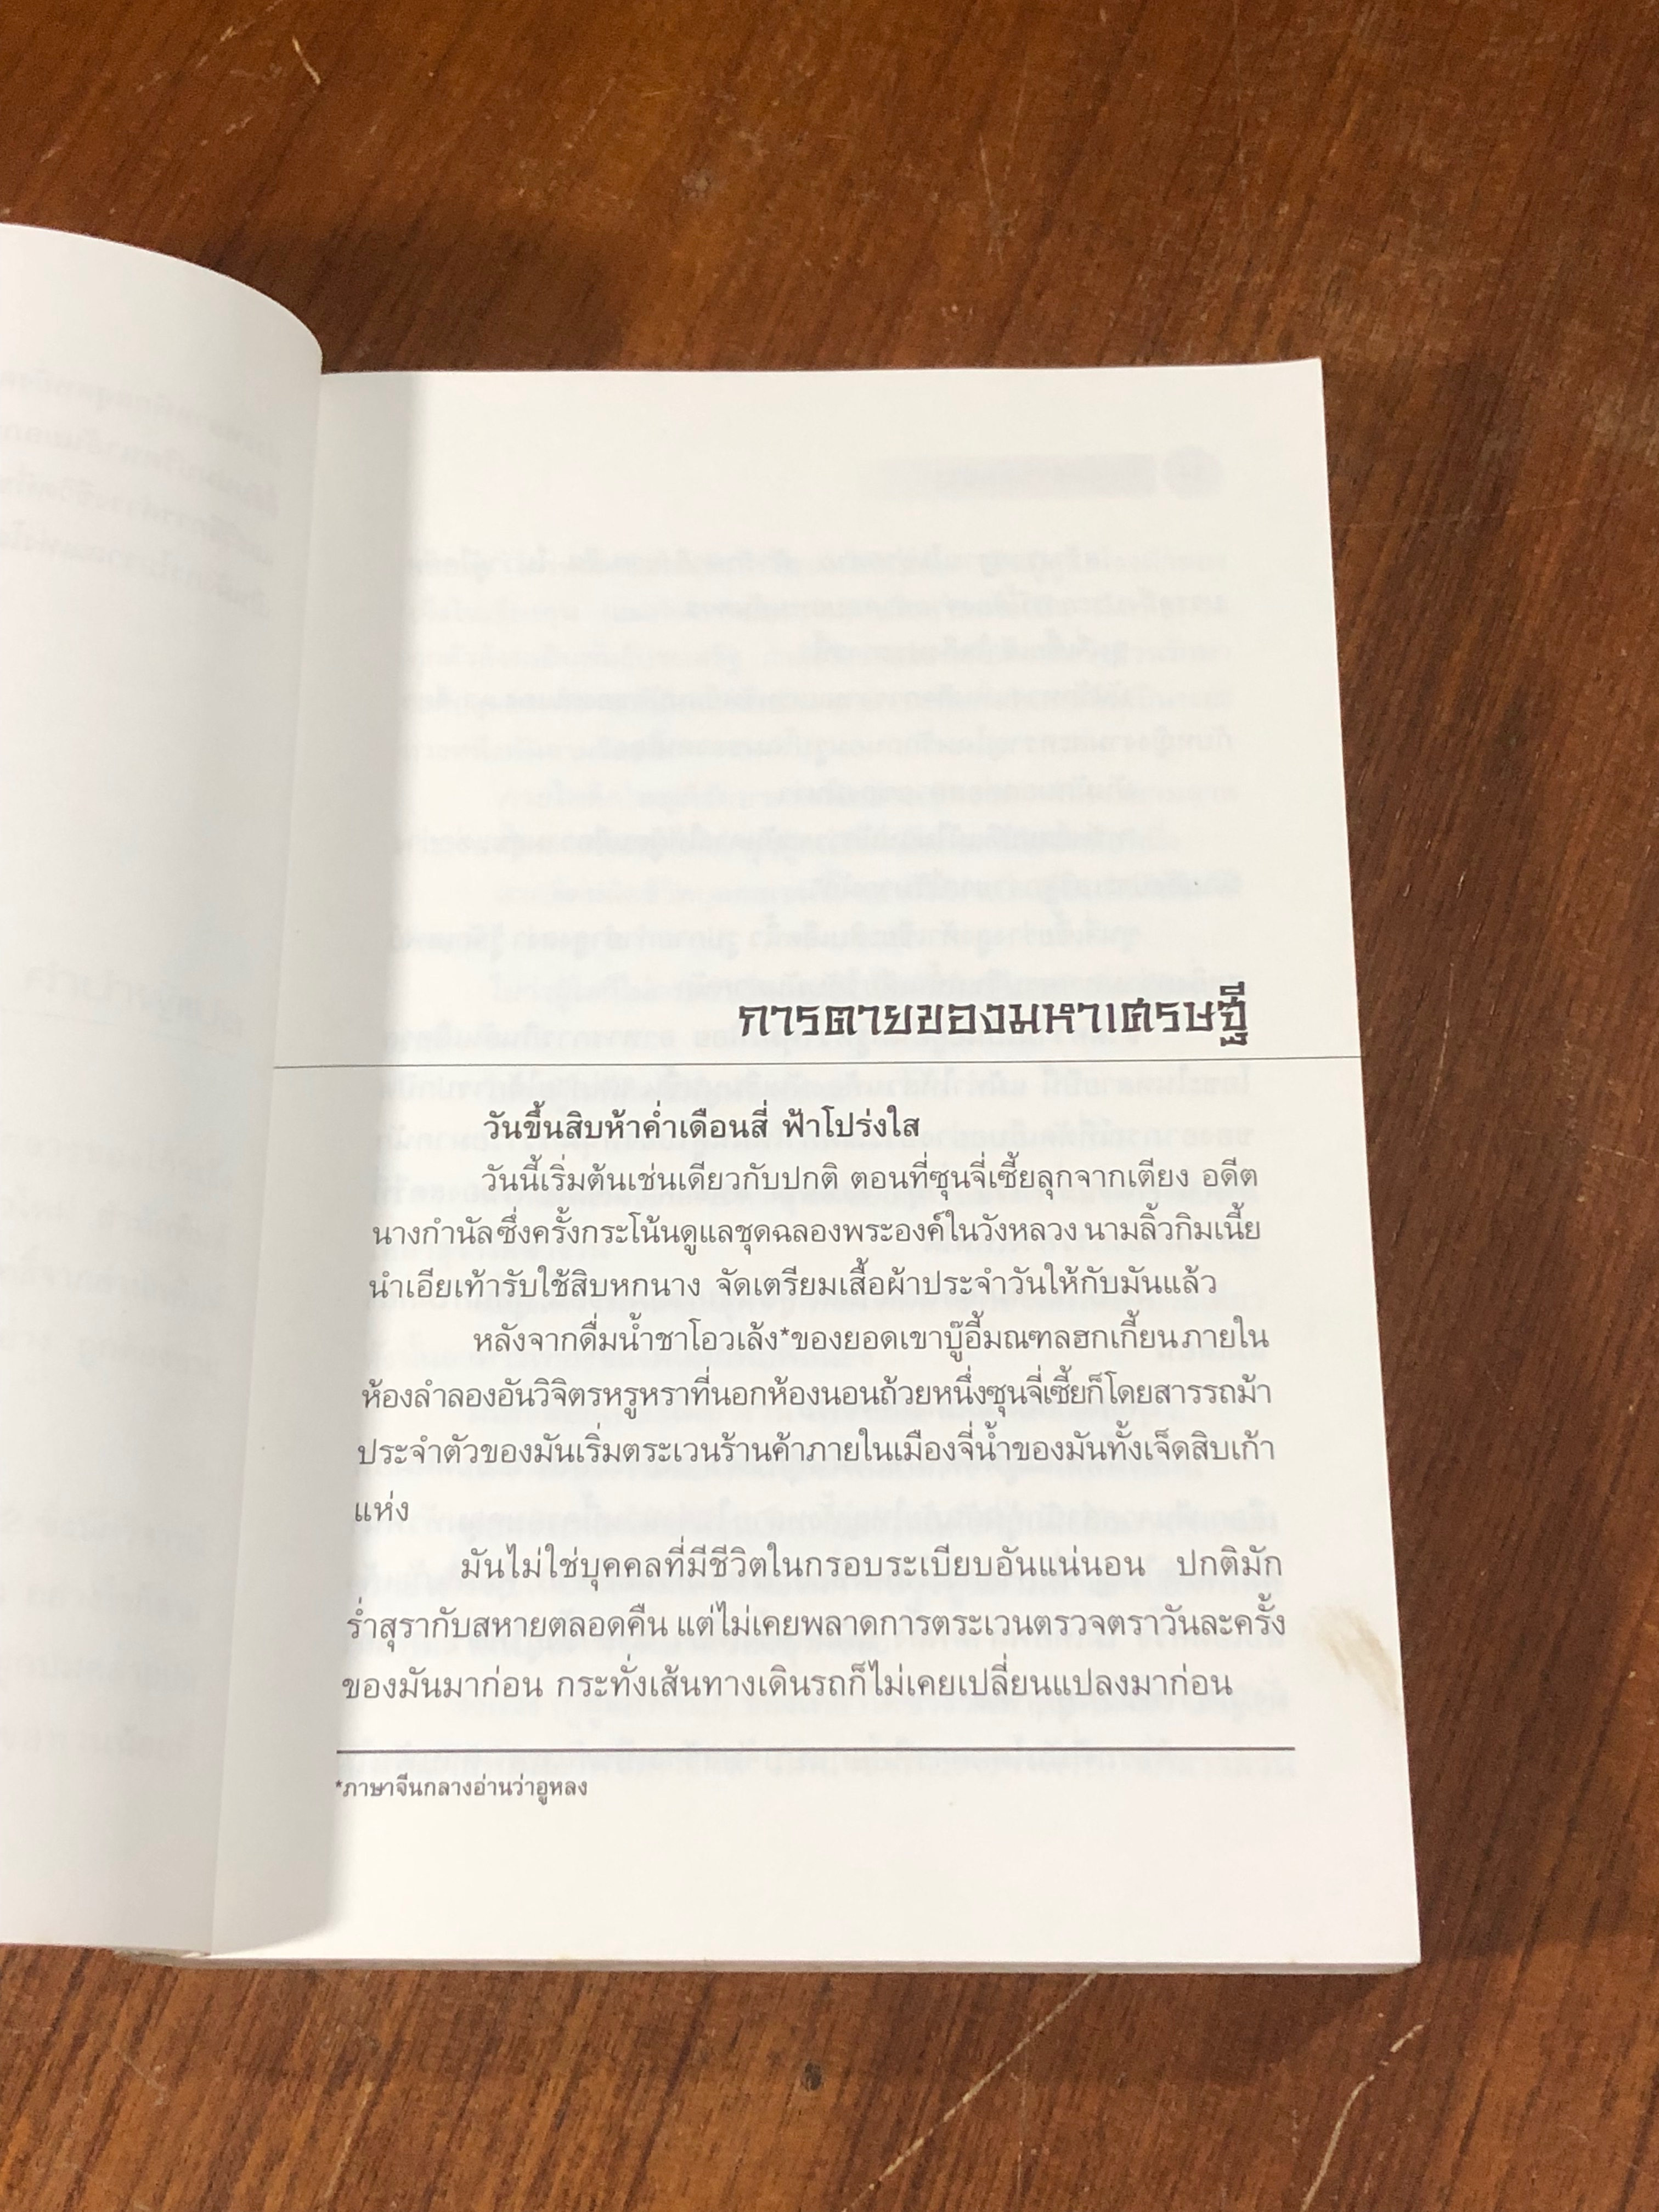 การตายของมหาเศรษฐี
วันขึ้นสิบห้าค่ำเดือนสี่ ฟ้าโปร่งใส
วันนี้เริ่มต้นเช่นเดียวกับปกติ ตอนที่ซุนจี่เซี้ยลุกจากเตียง อดีต
นางกำนัลซึ่งครั้งกระโน้นดูแลชุดฉลองพระองค์ในวังหลวง นามลิ้วกิมเนี้ย
นำเอียเท้ารับใช้สิบหกนาง จัดเตรียมเสื้อผ้าประจำวันให้กับมันแล้ว
หลังจากดื่มน้ำชาโอวเล้ง*ของยอดเขาบู๊อี้มณฑลฮกเกี้ยนภายใน
ห้องลำลองอันวิจิตรหรูหราที่นอกห้องนอนถ้วยหนึ่งซุนจี่เซี้ยก็โดยสารรถม้า
ประจำตัวของมันเริ่มตระเวนร้านค้าภายในเมืองจี่น้ำของมันทั้งเจ็ดสิบเก้า
แห่ง
มันไม่ใช่บุคคลที่มีชีวิตในกรอบระเบียบอันแน่นอน ปกติมัก
ร่ำสุรากับสหายตลอดคืน แต่ไม่เคยพลาดการตระเวนตรวจตราวันละครั้ง
ของมันมาก่อน กระทั่งเส้นทางเดินรถก็ไม่เคยเปลี่ยนแปลงมาก่อน
*ภาษาจีนกลางอ่านว่าอูหลง